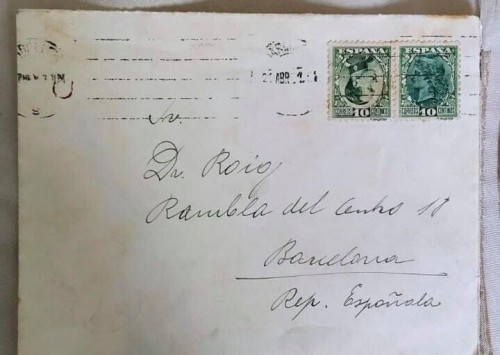 ESPAÑA
ESPAÑA
10
10
ABR
Sr.
Dr. Roig
Rambla del Centro 18
Barcelona
Rep. Española